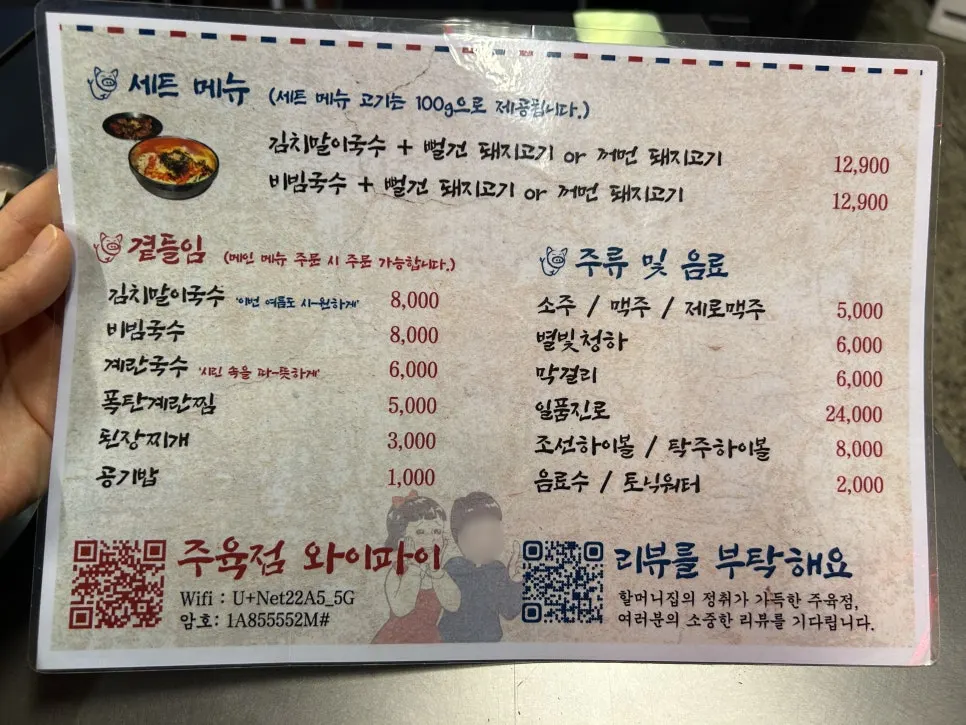 세트 메뉴 (세트 메뉴 고기는 100g으로 제공됩니다.)
김치말이국수 + 뻘건 돼지고기 or 꺼먼 돼지고기 12,900
비빔국수 + 뻘건 돼지고기 or 꺼먼 돼지고기 12,900
곁들임 (메인 메뉴 주문 시 주문 가능합니다.)
김치말이국수 '이번 여름도 시-원하게' 8,000
비빔국수 8,000
계란국수 '시린 속을 따-뜻하게' 6,000
폭탄계란찜 5,000
된장찌개 3,000
공기밥 1,000
주류 및 음료
소주 / 맥주 / 제로맥주 5,000
별빛청하 6,000
막걸리 6,000
일품진로 24,000
조선하이볼 / 탁주하이볼 8,000
음료수 / 토닉워터 2,000
주육점 와이파이
Wifi : U+Net22A5_5G
암호: 1A855552M#
리뷰를 부탁해요
할머니집의 정취가 가득한 주육점,
여러분의 소중한 리뷰를 기다립니다.